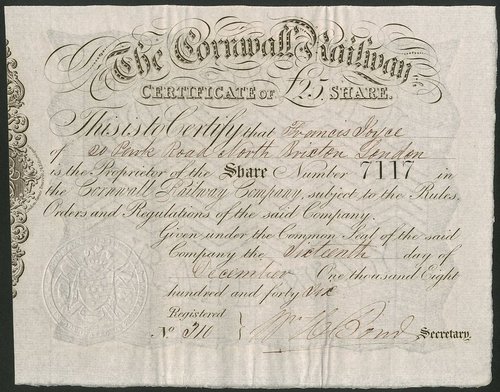 The Cornwall Railway
CERTIFICATE OF £25 SHARE.
This is to Certify that Francis Joyce
of 20 Park Road North Brixton London
is the Proprietor of the Share Number 7117 in
the Cornwall Railway Company, subject to the Rules,
Orders and Regulations of the said Company.
Given under the Common Seal of the said
Company the Sixteenth day of
December One thousand Eight
hundred and forty Six
Registered
No 210 Wm H. Bond Secretary.